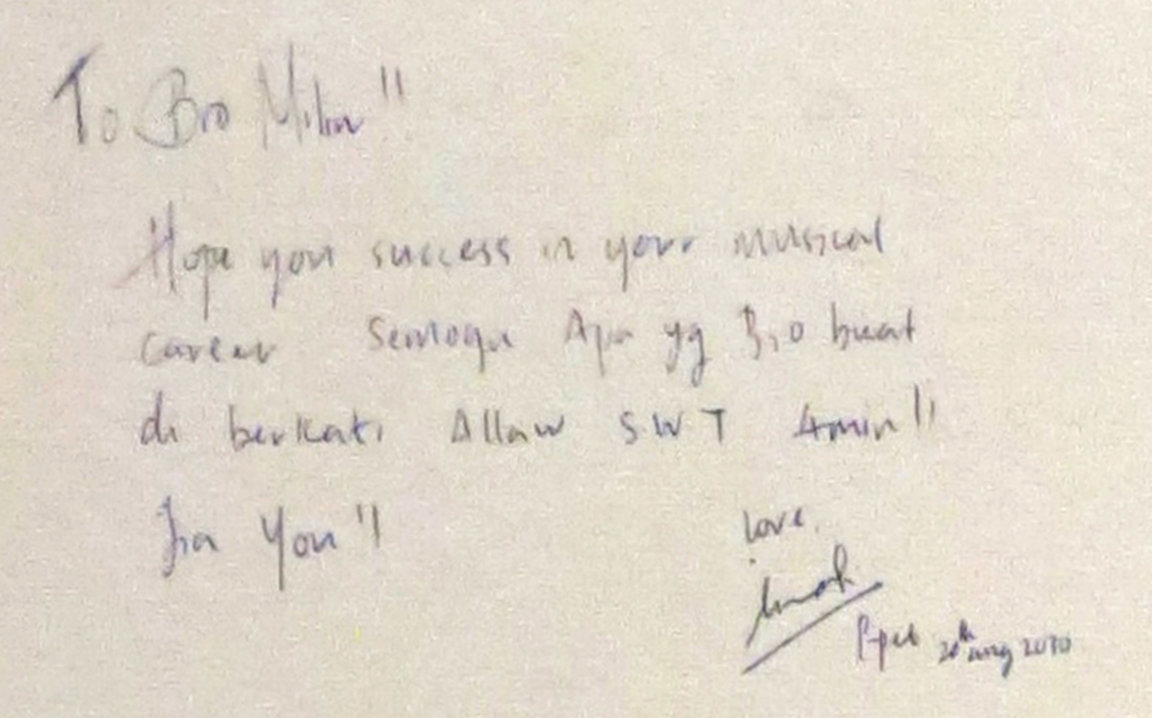 To Bro
Hope you success in your musical
career Semoga Apa yg Bro buat
di berkati Allaw SWT Amin!!
You!!
Love,
20th aug 2010